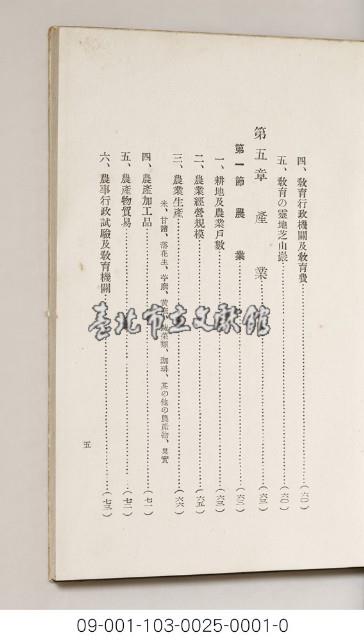 四、教育行政機關及敎育費……(六〇)
五、敎育の靈地芝山巖……(六〇)
第五章 產業……(六三)
第一節 農業……(六三)
一、耕地及農業戶數……(六三)
二、農業經營規模……(六五)
三、農業生產……(六六)
米、甘藷、落花生、苧麻、黃麻、蔬菜類、珈琲、其の他の農產物、果實
四、農產加工品……(七一)
五、農產物貿易……(七二)
六、農事行政試驗及敎育機關……(七三)
五
臺北市立文獻館
09-001-103-0025-0001-0